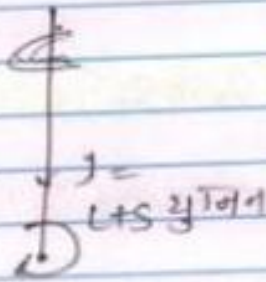 J =
L+S युग्मन